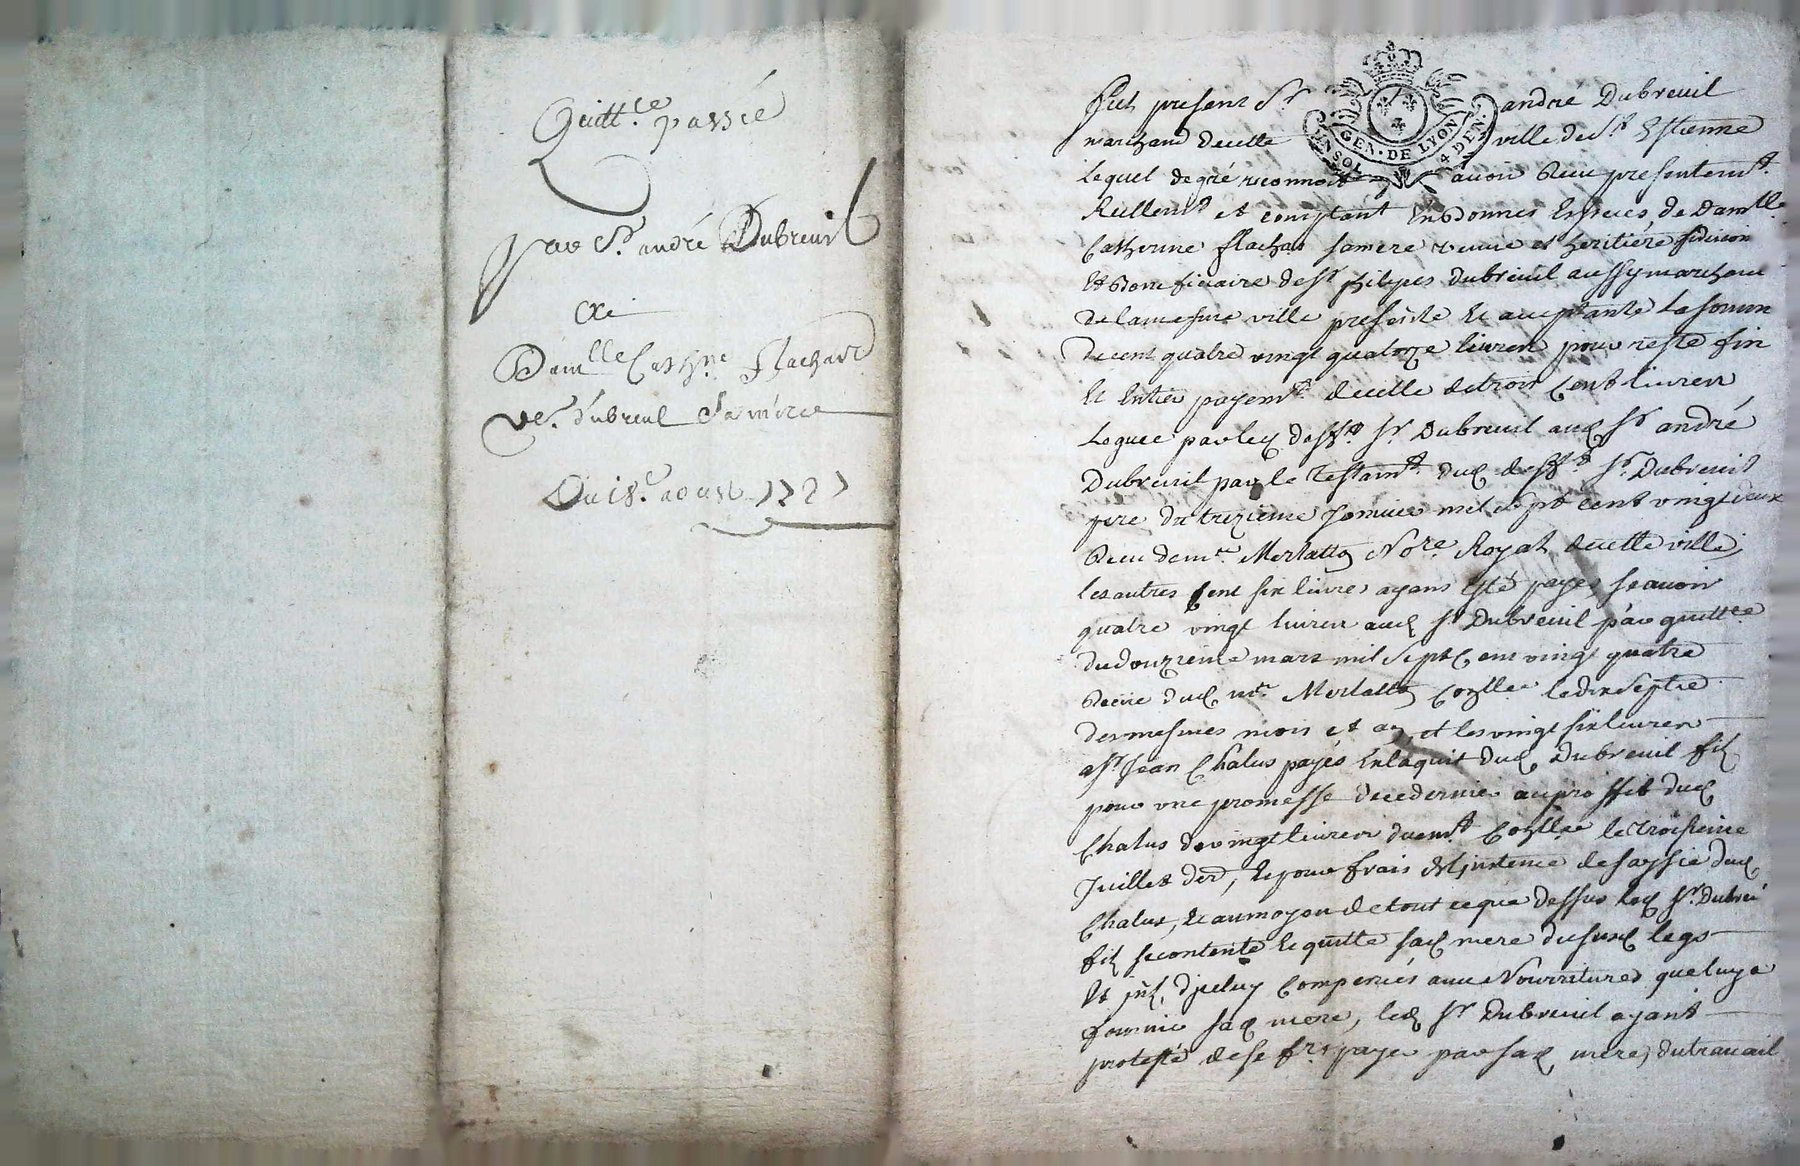 Quitt.ce passée
par Sr. andré Dubreuil
A
Damlle Cathne. flachat
ve. dubreul Sa mère
Du 18e. aoust 1727
GEN. DE LYON
UN SOL 4 DEN.
fut present Sr andré Dubreuil
marchand decette ville de St Estienne
Lequel degré reconnoit avoir Receu presentemt.
Reellemt et comptant En bonnes Especes de Damlle
Catherine flachat sa mere veuve et heritière
Et Beneficiaire de Sr philipes Dubreuil aussy marchand
de la mesme ville presente Et acceptante La somme
de cent quatre vingt quatorze livres pour reste fin
Et Entier payemt. decelle de trois Cent livres
Leguee par led desft. Sr Dubreuil aud Sr andré
Dubreuil par le Testamt. dud desft. Sr. Dubreuil
pere du treizieme Janvier mil sept cent vingt deux
Receu de me Merlatto Nore Royal decette ville,
les autres Cent six livres ayans esté payes, scavoir
quatre vingt livres aud Sr Dubreuil par quittce.
du douzieme mars mil Sept Cent vingt quatre
Receue dud me Merlatto Conllee le dixseptre
des mesmes mois et an, et les vingt six livres
a Sr Jean Chalus payés En laquit dud Dubreuil fil
pour une promesse de ce dernier au proffit dud
Chalus de vingt livres duemt Conllee le troisieme
Juillet der, Et pour frais Et Instence de saysie dud
Chalus, Et au moyen de tout ce que dessus led Sr. Dubreuil
fil se contente Et quitte sad mere du susd legs
Et d'iceluy Compencés avec Nourritures que luy a
fournie sad mere, led Sr Dubreuil ayant
protesté de se fre payer par sad mere, du travail